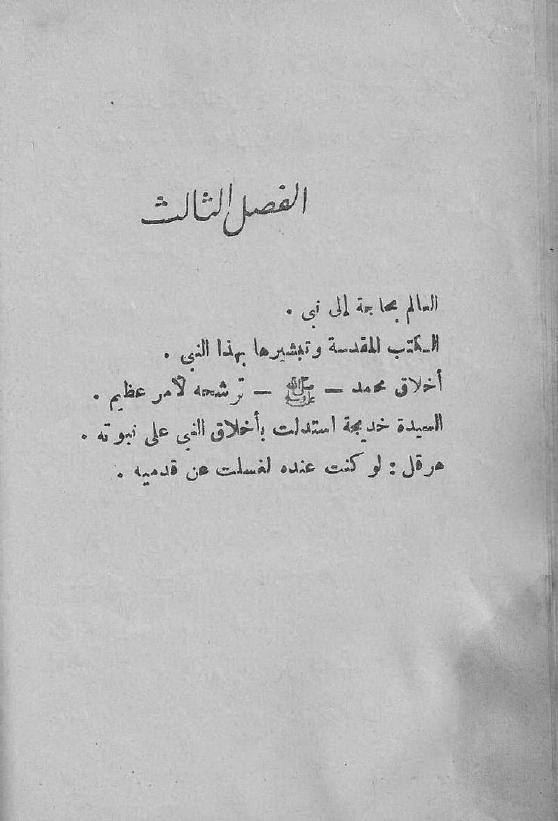 الفصل الثالث
العالم بحاجة إلى نبي .
الكتب المقدسة وتبشيرها بهذا النبي .
أخلاق محمد – ﷺ – ترشحه لأمر عظيم .
السيدة خديجة استدلت بأخلاق النبي على نبوته .
هرقل : لو كنت عنده لغسلت عن قدميه .